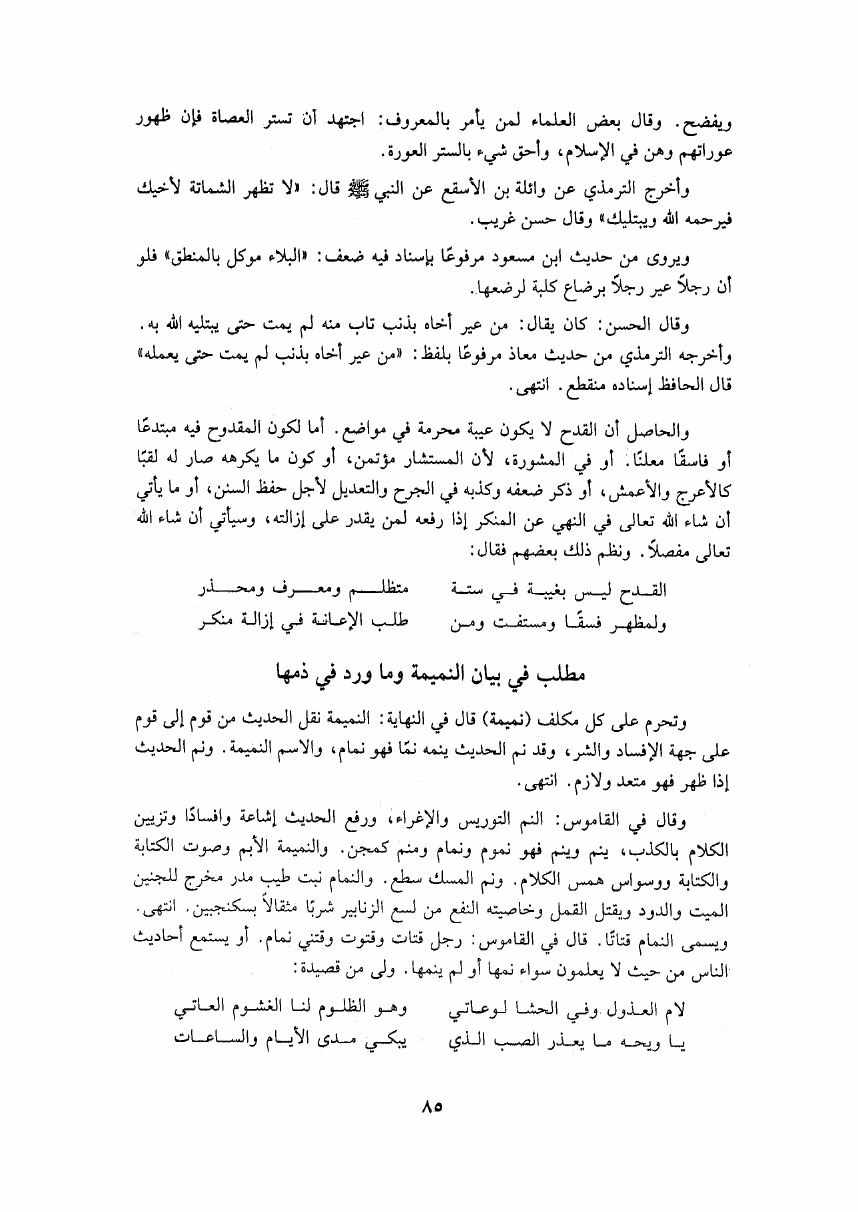 ويفضح. وقال بعض العلماء لمن يأمر بالمعروف: اجتهد أن تستر العصاة فإن ظهور
عوراتهم وهن في الإسلام، وأحق شيء بالستر العورة.
وأخرج الترمذي عن واثلة بن الأسقع عن النبي ﷺ قال: «لا تظهر الشماتة لأخيك
فيرحمه الله ويبتليك» وقال حسن غريب.
ويروى من حديث ابن مسعود مرفوعًا بإسناد فيه ضعف: «البلاء موكل بالمنطق» فلو
أن رجلاً عير رجلاً برضاع كلبة لرضعها.
وقال الحسن: كان يقال: من عير أخاه بذنب تاب منه لم يمت حتى يبتليه الله به.
وأخرجه الترمذي من حديث معاذ مرفوعًا بلفظ: «من عير أخاه بذنب لم يمت حتى يعمله»
قال الحافظ إسناده منقطع. انتهى.
والحاصل أن القدح لا يكون عيبة محرمة في مواضع. أما لكون المقدوح فيه مبتدعًا
أو فاسقًا معلنًا. أو في المشورة، لأن المستشار مؤتمن، أو كون ما يكرهه صار له لقبًا
كالأعرج والأعمش، أو ذكر ضعفه وكذبه في الجرح والتعديل لأجل حفظ السنن، أو ما يأتي
أن شاء الله تعالى في النهي عن المنكر إذا رفعه لمن يقدر على إزالته، وسيأتي أن شاء الله
تعالى مفصلاً. ونظم ذلك بعضهم فقال:
القدح ليس بغيبة في ستة متظلم ومعرف ومحذر
ولمظهر فسقًا ومستفت ومن طلب الإعانة في إزالة منكر
مطلب في بيان النميمة وما ورد في ذمها
وتحرم على كل مكلف (نميمة) قال في النهاية: النميمة نقل الحديث من قوم إلى قوم
على جهة الإفساد والشر، وقد نم الحديث ينمه نمًا فهو نمام، والاسم النميمة. ونم الحديث
إذا ظهر فهو متعد ولازم. انتهى.
وقال في القاموس: النم التوريس والإغراء، ورفع الحديث إشاعة وافسادًا وتزيين
الكلام بالكذب، ينم وينم فهو نموم ونمام ومنم كمجن. والنميمة الأبم وصوت الكتابة
والكتابة ووسواس همس الكلام. ونم المسك سطع. والنمام نبت طيب مدر مخرج للجنين
الميت والدود ويقتل القمل وخاصيته النفع من لسع الزنابير شربًا مثقالاً بسكنجبين. انتهى.
ويسمى النمام قتاتًا. قال في القاموس: رجل قتات وقتوت وقتني نمام. أو يستمع أحاديث
الناس من حيث لا يعلمون سواء نمها أو لم ينمها. ولى من قصيدة:
لام العذول وفي الحشا لوعاتي وهو الظلوم لنا الغشوم العاتي
يا ويحه ما يعذر الصب الذي يبكي مدى الأيام والساعات
٨٥